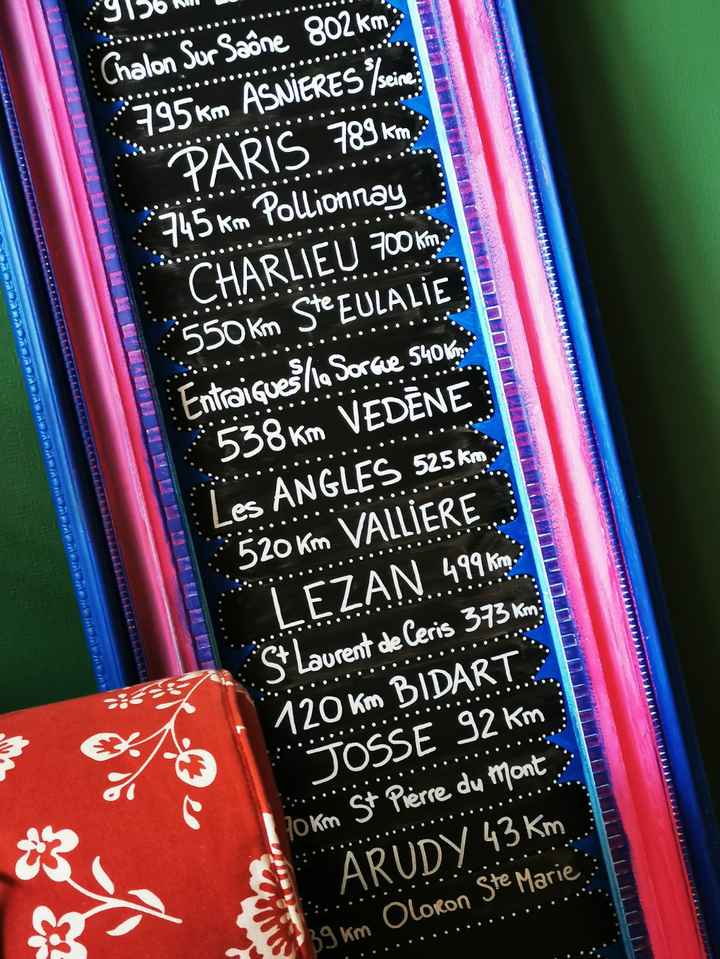 Chalon Sur Saône 802 km
795 km ASNIERES s/seine
PARIS 789 km
745 km Pollionnay
CHARLIEU 700 km
550 km Ste EULALIE
Entraigues s/la Sorgue 540 km
538 km VEDÈNE
Les ANGLES 525 km
520 km VALLIERE
LEZAN 499 km
St Laurent de Ceris 373 km
120 km BIDART
JOSSE 92 km
70 km St Pierre du Mont
ARUDY 43 km
39 km OLORON Ste MARIE